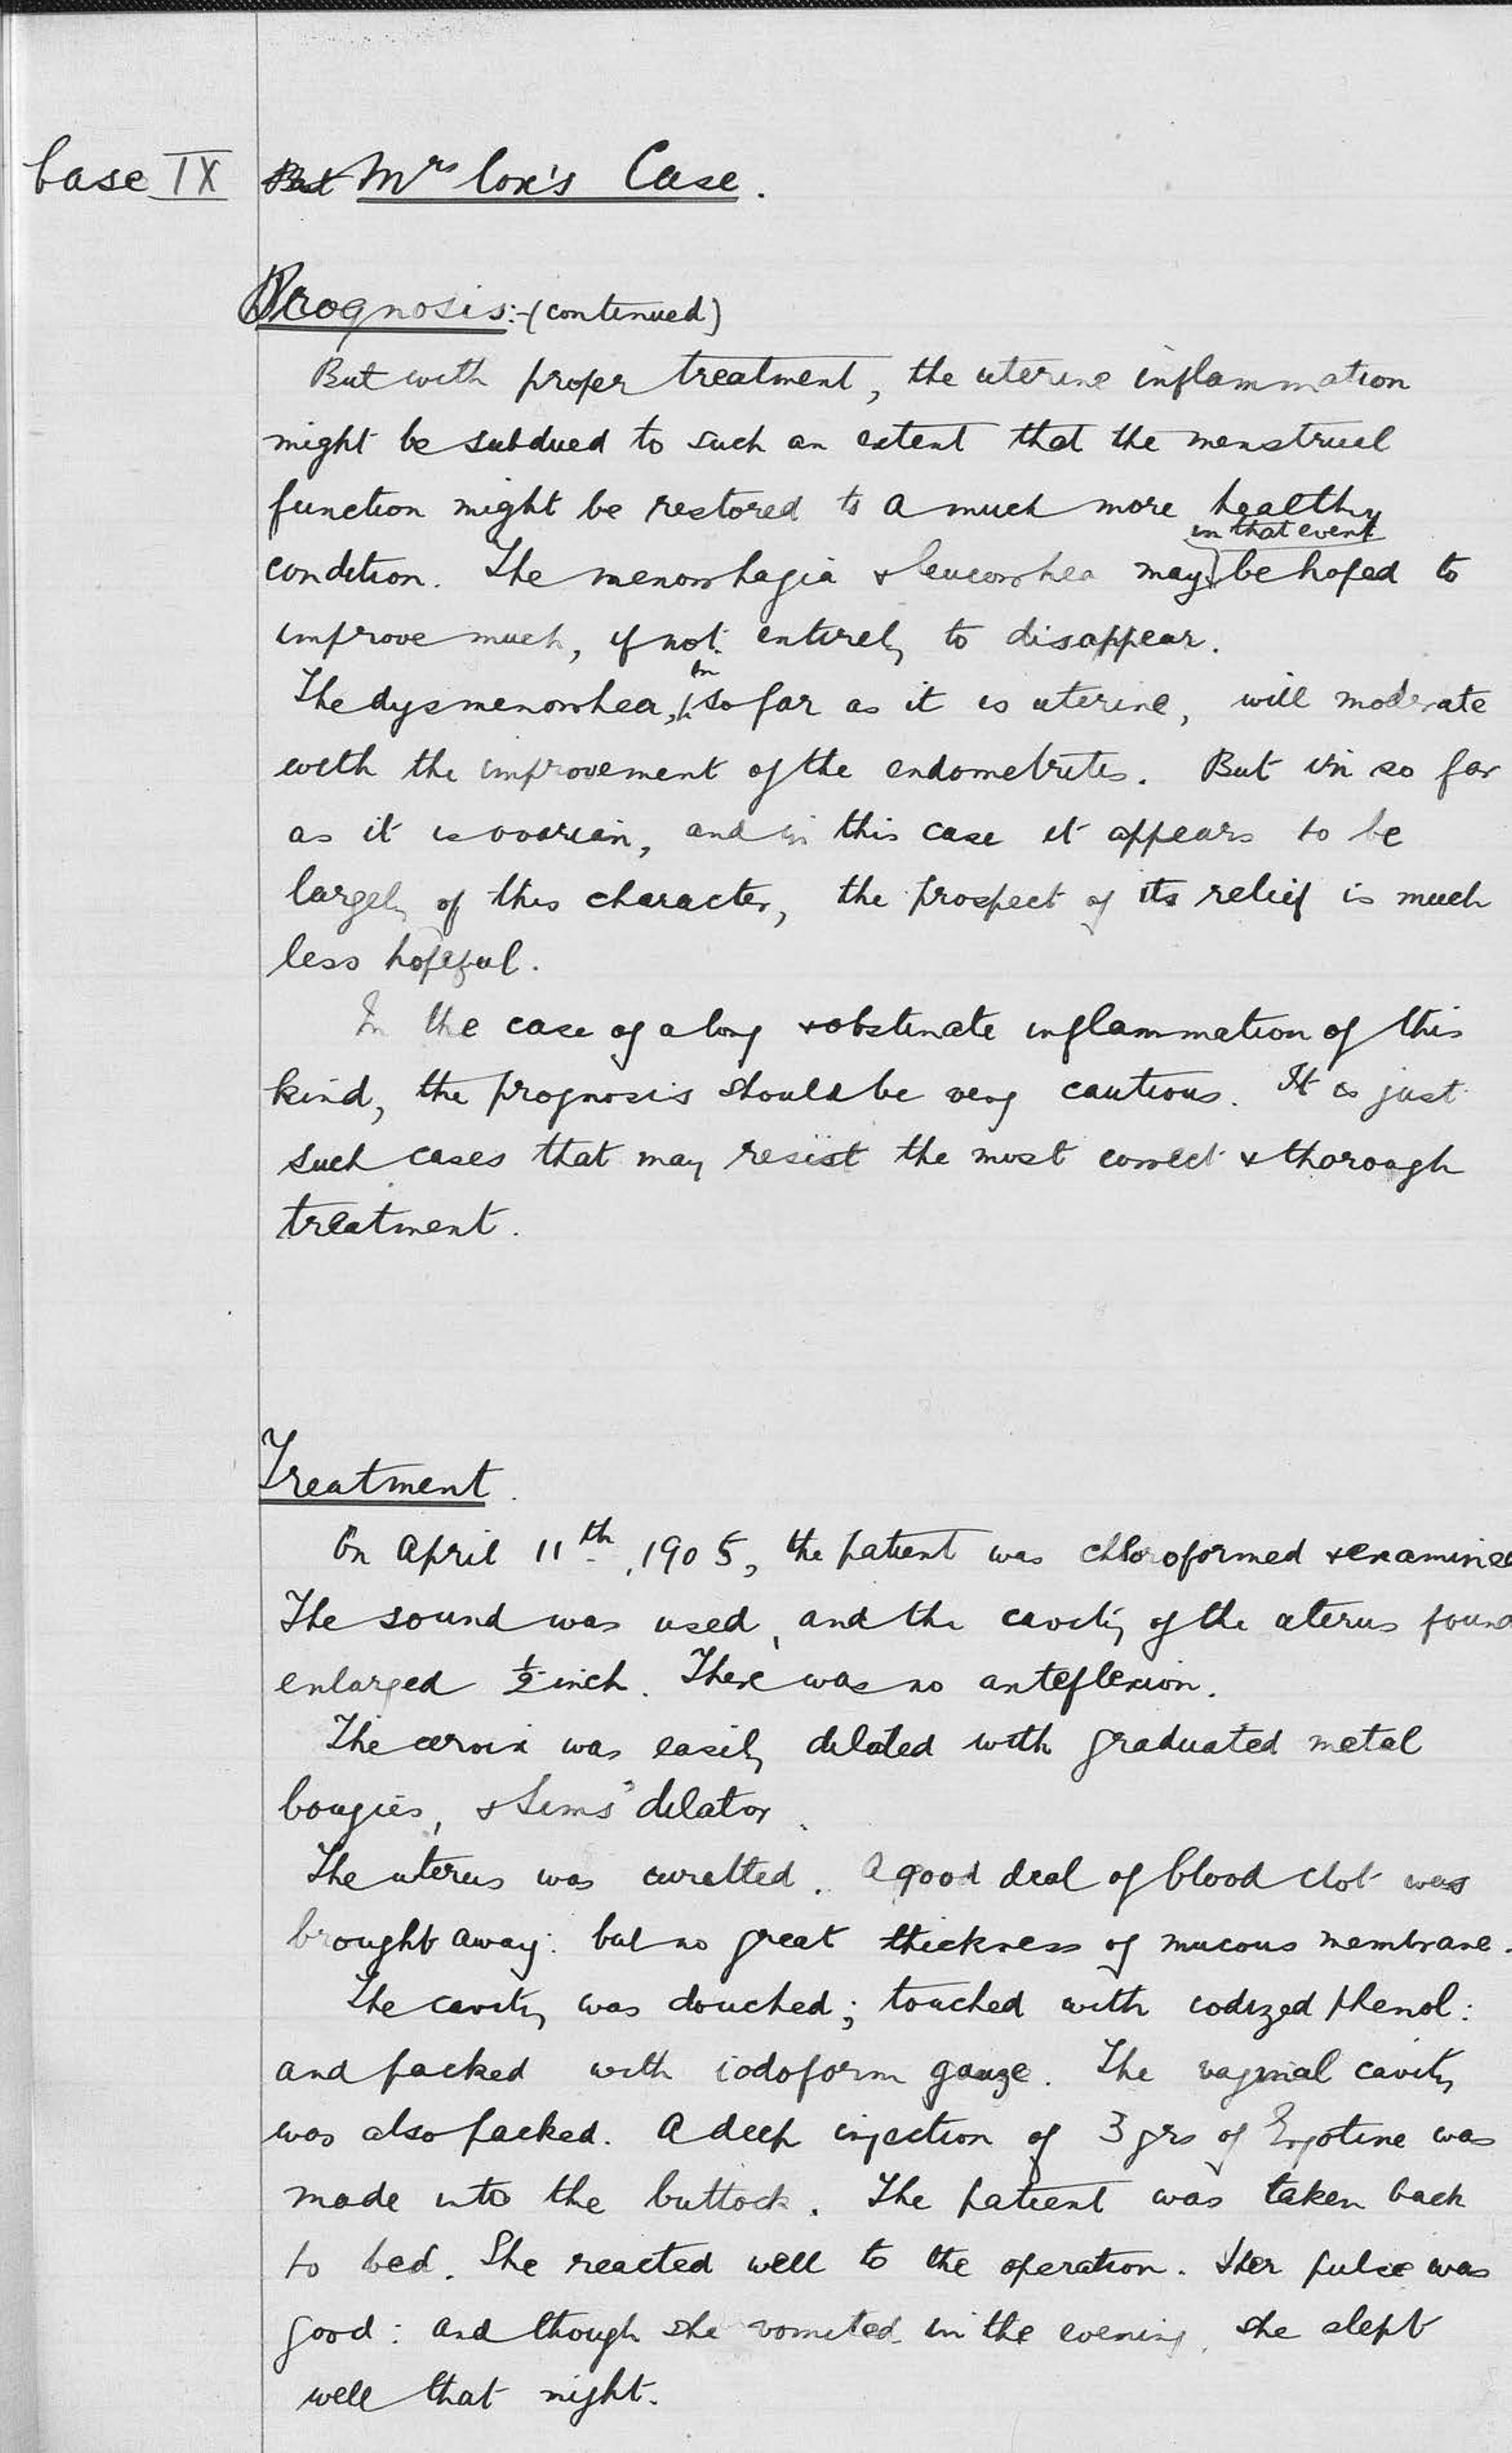 Case IX Mrs Cox's Case.
Prognosis:-(continued)
But with proper treatment, the uterine inflammation
might be subdued to such an extent that the menstrual
function might be restored to a much more healthy
in that event
condition. The menorrhagia & leucorrhea may be hoped to
improve much, if not entirely to disappear.
in
The dysmenorrhea, so far as it is uterine, will moderate
with the improvement of the endometritis. But in so far
as it is ovarian, and in this case it appears to be
largely of this character, the prospect of its relief is much
less hopeful.
In the case of a long & obstinate inflammation of this
kind, the prognosis should be very cautious. It is just
such cases that may resist the most correct & thorough
treatment.
Treatment.
On April 11th, 1905, the patient was chloroformed & examined
The sound was used, and the cavity of the uterus found
enlarged ½ inch. There was no anteflexion.
The cervix was easily dilated with graduated metal
bougies, & Sims' dilator.
The uterus was curetted. A good deal of blood clot was
brought away: but no great thickness of mucous membrane.
The cavity was douched; touched with iodized phenol:
and packed with iodoform gauze. The vaginal cavity
was also packed. A deep injection of 3 grs of Ergotine was
made into the buttock. The patient was taken back
to bed. She reacted well to the operation. Her pulse was
good: and though she vomited in the evening, she slept
well that night.